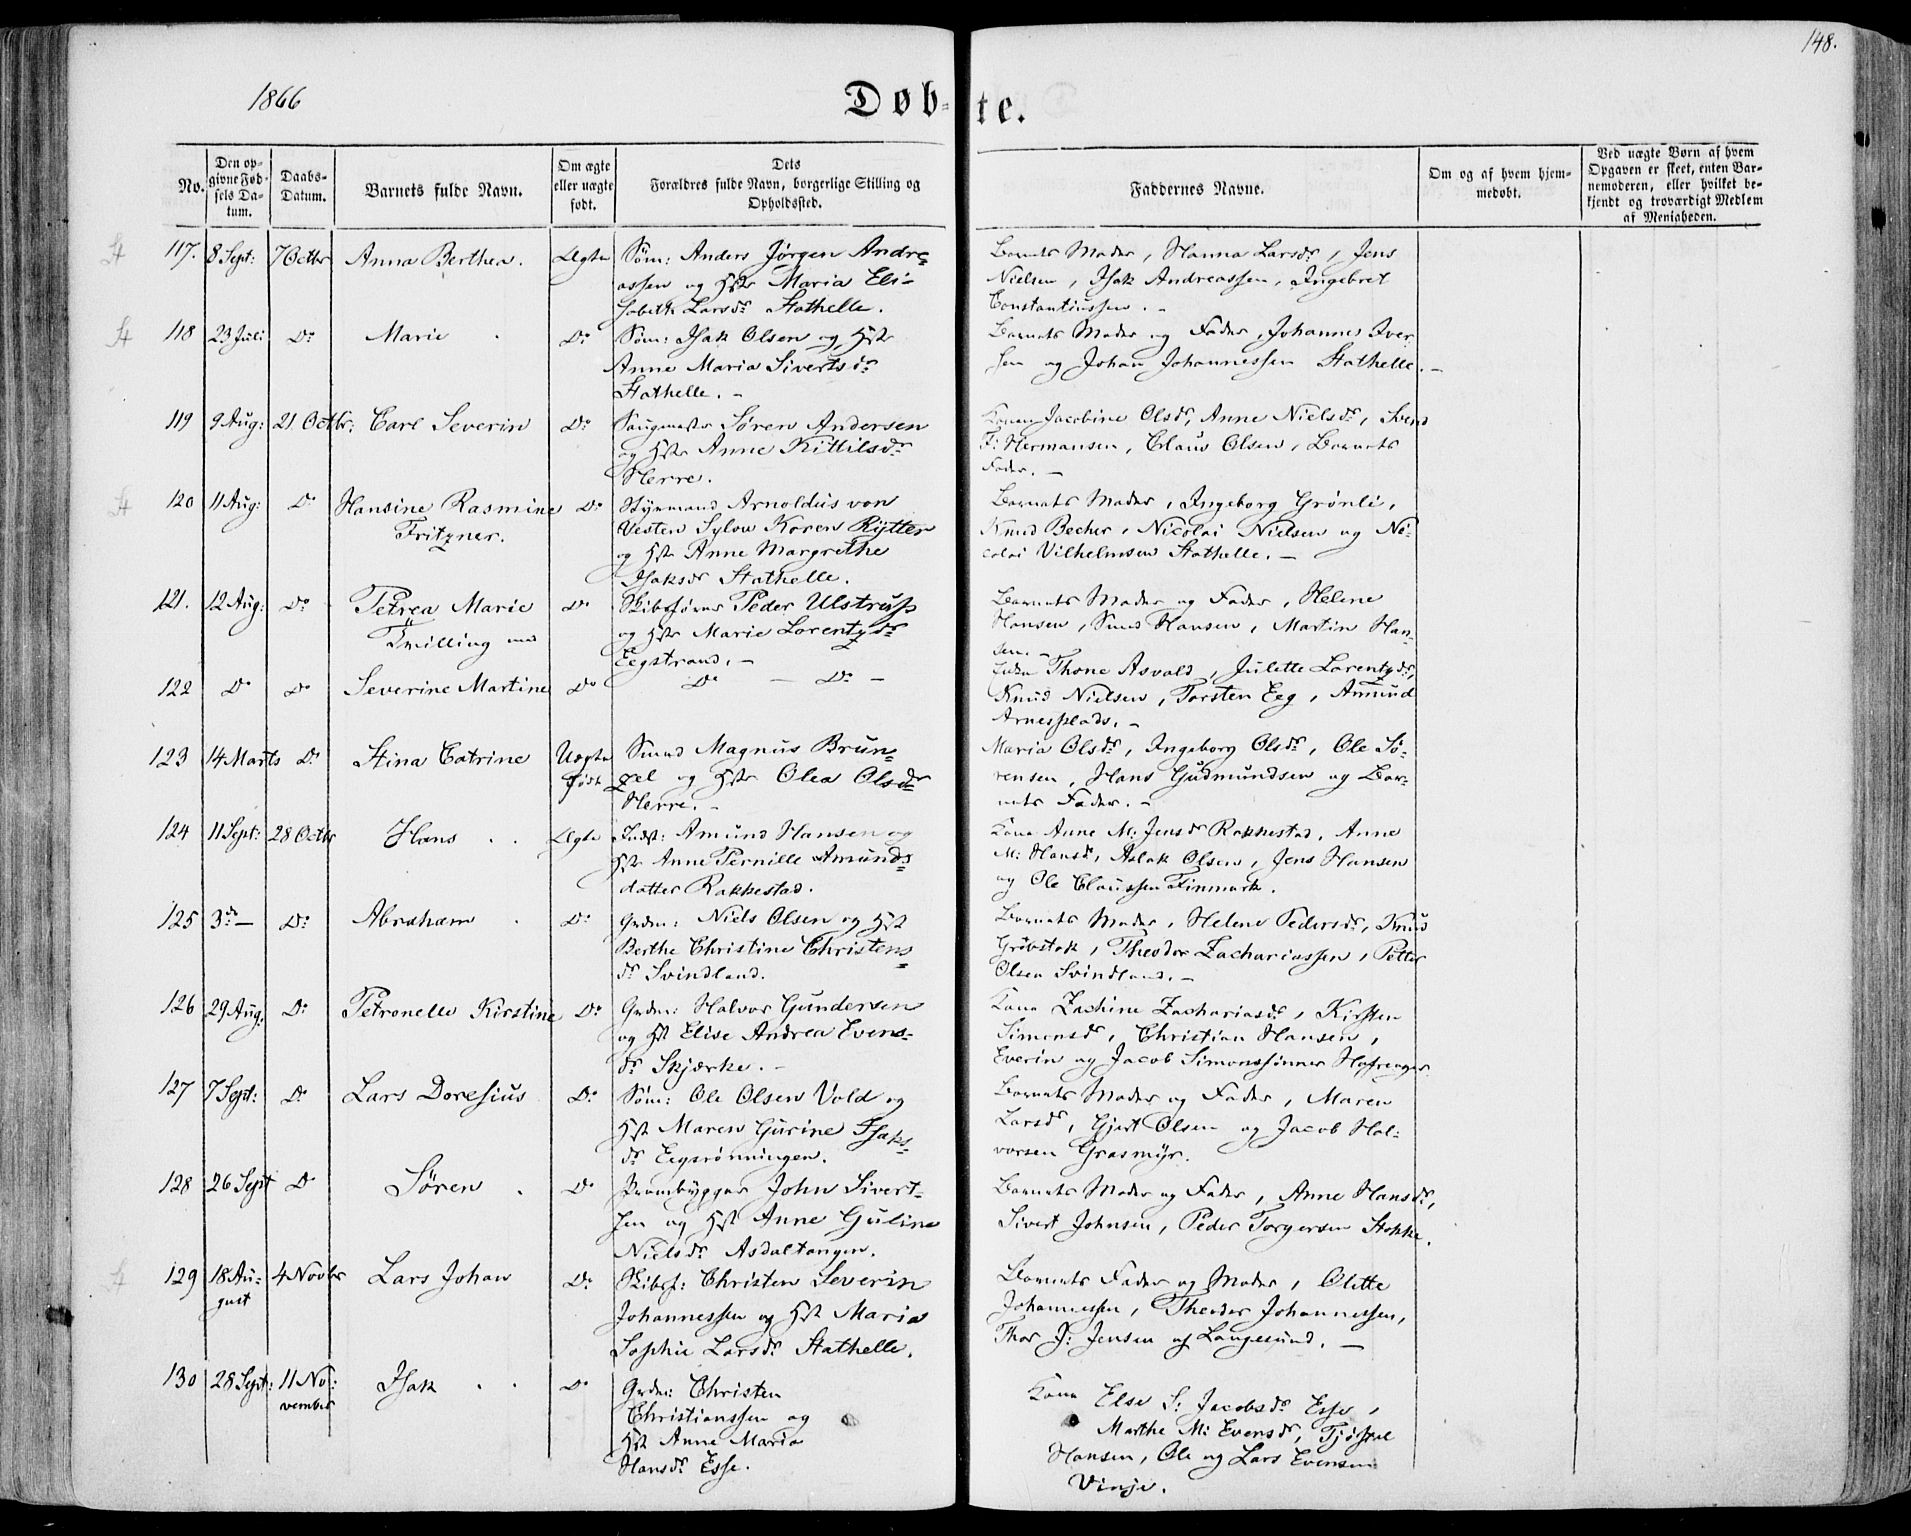 148.
1866
Døb-te.
No.
Den opgivne Fødsels Datum.
Daabs-Datum.
Barnets fulde Navn.
Om ægte eller uægte født.
Dets Forældres fulde Navn, borgerlige Stilling og Opholdssted.
Faddernes Navne.
Om og af hvem hjemmedøbt.
Ved uægte Børn af hvem Opgaven er skeet, enten Barnemoderen, eller hvilket bekjendt og troværdigt Medlem af Menigheden.
117. 8 Sept: 7 Octbr Anna Berthea. Ægte Søm: Anders Jørgen Andre= Barnets Moder, Hanna Larsdr, Jens
assen og Hst Maria Eli= Nielsen, Isak Andreassen, Ingebret
sabeth Larsdr Stathelle. Constantiussen. -
118 23 Juli Do Marie Do Søm: Isak Olsen og Hst Barnets Moder og Fader, Johannes Iver
Anne Maria Sivertsdr sen og Johan Johannessen Stathelle. -
Stathelle. -
119 9 Aug: 21 Octbr: Carl Severin Do Saugmester Søren Andersen Konen Jacobine Olsdr, Anne Nielsdr, Svend
og Hst Anne Kittilsdr F: Hermansen, Claus Olsen, Barnets
Herre. Fader. -
120 11 Aug: Do Hansine Rasmine Do Styrmand Arnoldus von Barnets Moder, Ingeborg Grønli,
Fritzner. Vesten Sylow Koren Rytter Knud Becher, Nicolai Nielsen og Ni=
og Hst Anne Margrethe colai Vilhelmsen Stathelle. -
Isaksdr Stathelle.
121. 12 Aug: Do Petrea Marie Do Skibsfører Peder Ulstrup Barnets Moder og Fader, Helene
Tvilling med og Hst Marie Lorentzdr Hansen, Hansen, Martin Han=
Eegstrand. - sen. -
122 Do Do Severine Martine Do Do - Do - Thone Asvald, Julette Lorentzdr,
Knud Nielsen, Torsten Eeg, Amund
Arnesplads. -
123 14 Marts Do Stina Catrine Uægte Smed Magnus Brun= Maria Olsdr, Ingeborg Olsdr, Ole Sø=
født zel og Hst Olea Olsdr rensen, Hans Gudmundsen og Bar=
Herre. - nets Fader. -
124 11 Sept: 28 Octbr Hans Ægte Indst: Amund Hansen og Kone Anne M: Jensdr Rakkestad, Anne
Hst Anne Pernille Amunds= M: Hansdr, Aslak Olsen, Jens Hansen
datter Rakkestad. og Ole Claussen Finmark.
125 3die - Do Abraham Do Grdm: Niels Olsen og Hst Barnets Moder, Helene Pedersdr, Knud
Berthe Christine Christens= Grøbstok, Theodor Zachariassen, Petter
dr Svindland. Olsen Svindland. -
126 29 Aug: Do Petronelle Kirstine Do Grdm: Halvor Gundersen Kone Zachine Zachariasdr, Kirsten
og Hst Elise Andrea Evens= Simonsdr, Christian Hansen,
dr Skjærke. - Everin og Jacob Simonssønner
127 7 Sept: Do Lars Doresius Do Søm: Ole Olsen Vold og Barnets Moder og Fader, Maren
Hst Maren Gurine Isaks= Larsdr, Gjert Olsen og Jacob Hal=
dr Eegsrønningen. vorsen Grasmyr.
128 26 Sept Do Søren Do Prambygger John Sivert= Barnets Moder og Fader, Anne Hansdr,
sen og Hst Anne Guline Sivert Johnsen, Peder Torgersen Stokke.
Nielsdr Asdaltangen.
129 18 Au= 4 Novbr Lars Johan Do Skibsf: Christen Severin Barnets Fader og Moder, Olette
gust Johannessen og Hst Maria Johannessen, Theodor Johannessen,
Sophie Larsdr Stathelle. Thor J: Jensen af Langesund. -
130 28 Sept: 11 No= Isak Do Grdm: Christen Kone Else S: Jacobsdr Esse,
vember Christianssen og Marthe M: Evensdr,
Hst Anne Maria Hansen, Ole og Lars Evensen
Hansdr Esse. Vinje.